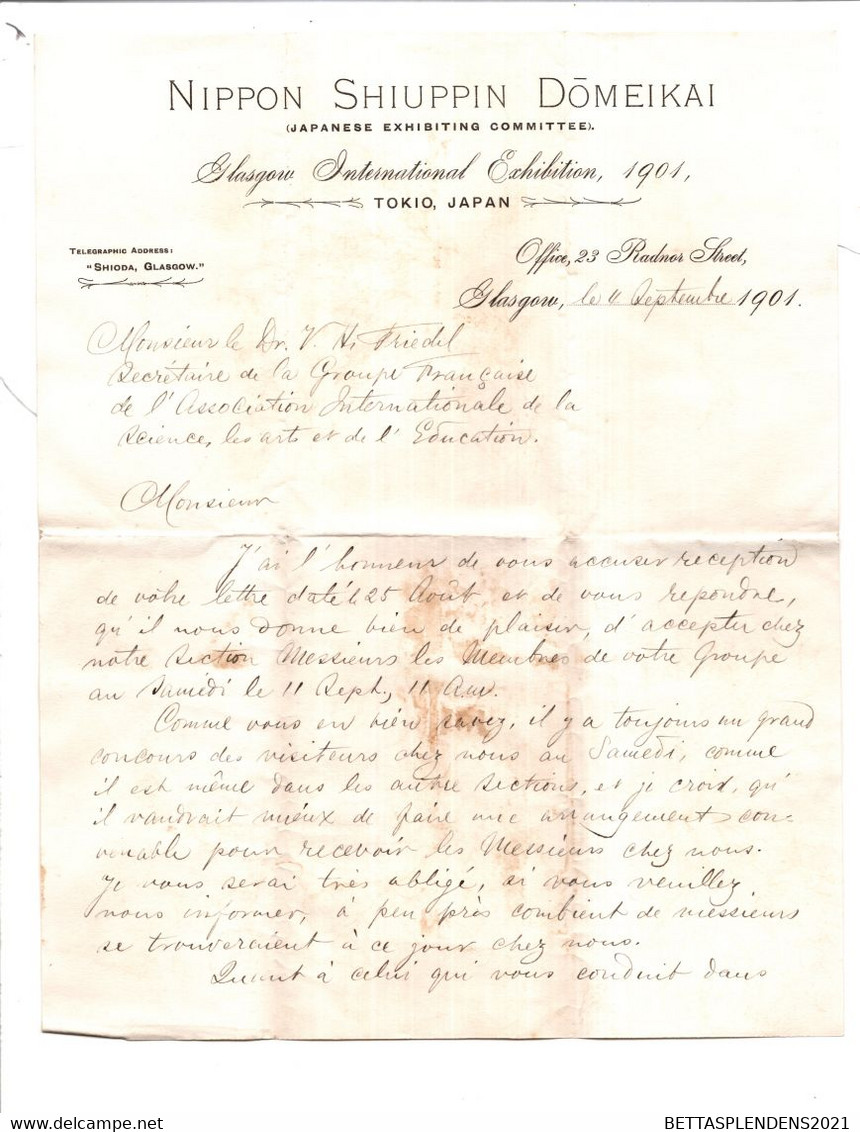 NIPPON SHIUPPIN DŌMEIKAI
(JAPANESE EXHIBITING COMMITTEE).
Glasgow International Exhibition, 1901,
TOKIO, JAPAN
TELEGRAPHIC ADDRESS:
"SHIODA, GLASGOW."
Office, 23 Radnor Street,
Glasgow, le 11 Septembre 1901.
Monsieur le Dr. V. H. Friedel
Secrétaire de la Groupe Française
de l'Association Internationale de la
Science, les arts et de l'Education.
Monsieur
J'ai l'honneur de vous accuser reception
de vôtre lettre daté 25 Août et de vous repondre,
qu'il nous donne bien de plaisir, d'accepter chez
nôtre Section Messieurs les Membres de vôtre Groupe
au Samedi le 11 Sept., 11 A.m.
Comme vous en bien savez, il y a toujours un grand
concours des visiteurs chez nous au Samedi, comme
il est même dans les autre Sections, et je crois, qu'
il vaudrait mieux de faire une arrangement con-
venable pour recevoir les Messieurs chez nous.
Je vous serai très obligé, si vous veuillez
nous informer, à peu près combient de messieurs
se trouveraient à ce jour chez nous.
Quant à celui qui vous conduit dans
BETTASPLENDENS2021